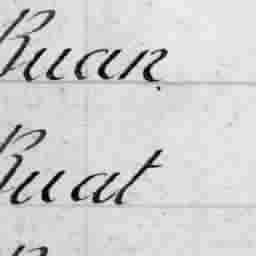 Ruan
Ruat